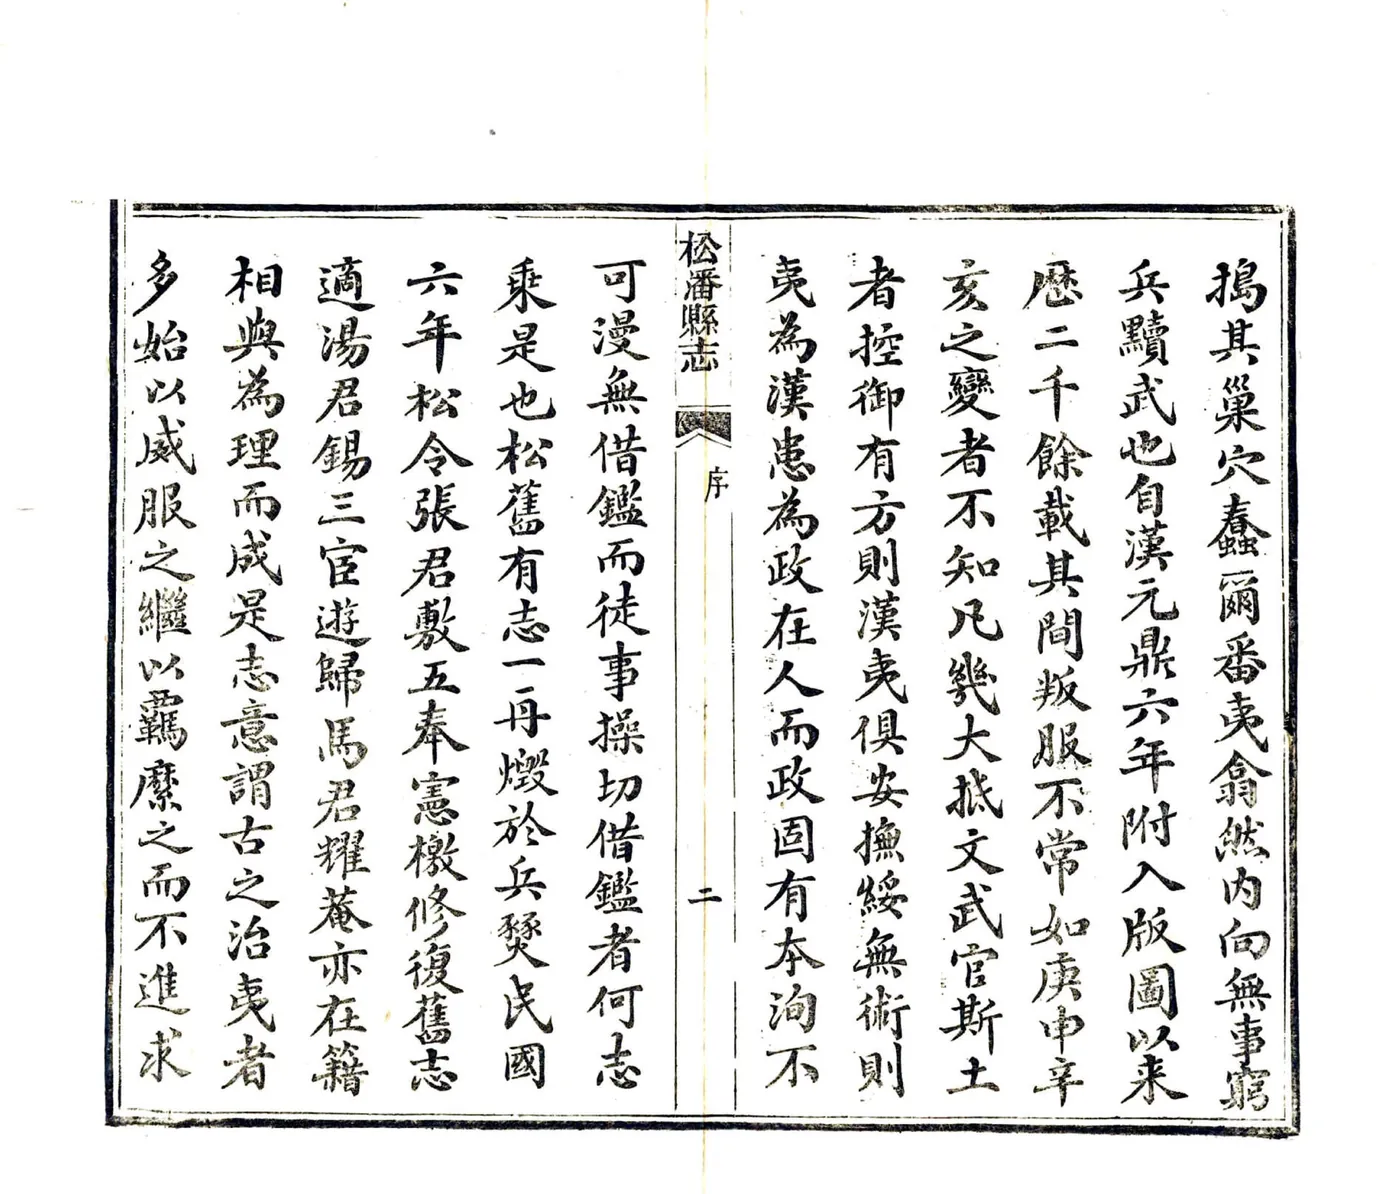 搗其巢穴蠢爾番夷翕然内向無事窮
兵黷武也自漢元鼎六年附入版圖以来
歷二千餘載其間叛服不常如庚申辛
亥之變者不知凡幾大抵文武官斯土
者控御有方則漢夷俱安撫綏無術則
夷為漢患為政在人而政固有本洵不
松潘縣志
序
二
可漫無借鑑而徒事操切借鑑者何志
乘是也松舊有志一冊燬於兵燹民國
六年松令張君敷五奉憲檄修復舊志
適湯君錫三宦遊歸馬君耀菴亦在籍
相與為理而成是志意謂古之治夷者
多始以威服之繼以羈縻之而不進求